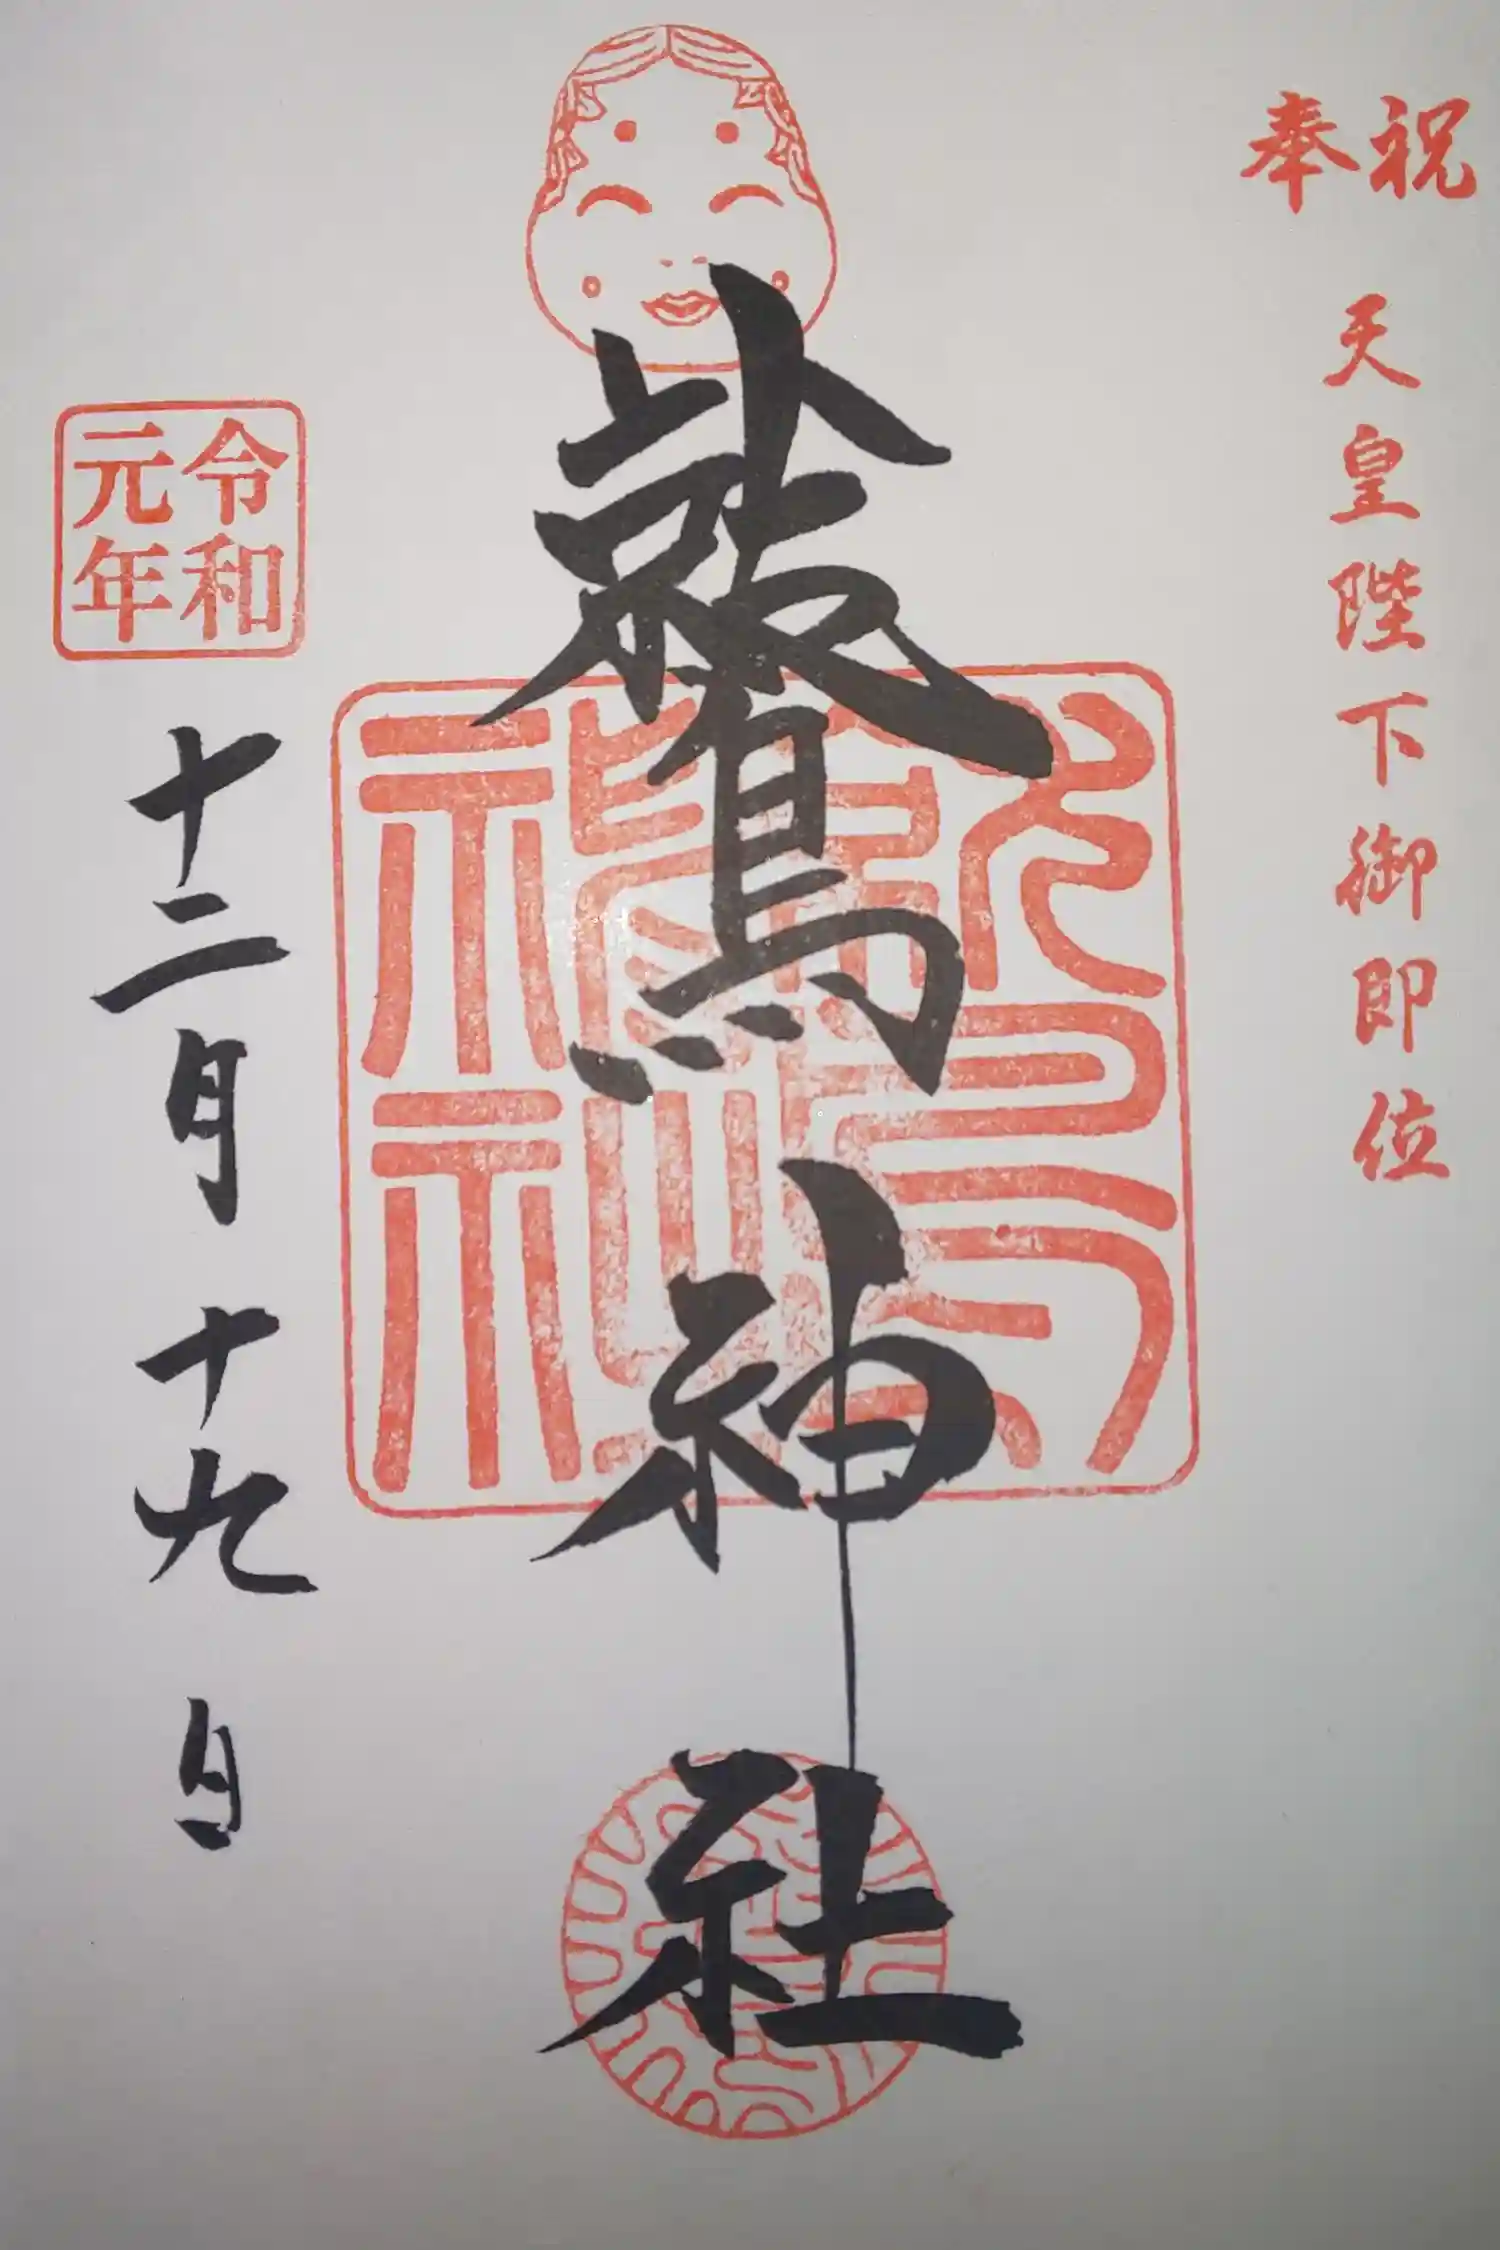 奉祝
天皇陛下御即位
鷲神社
令和元年
十二月十九日